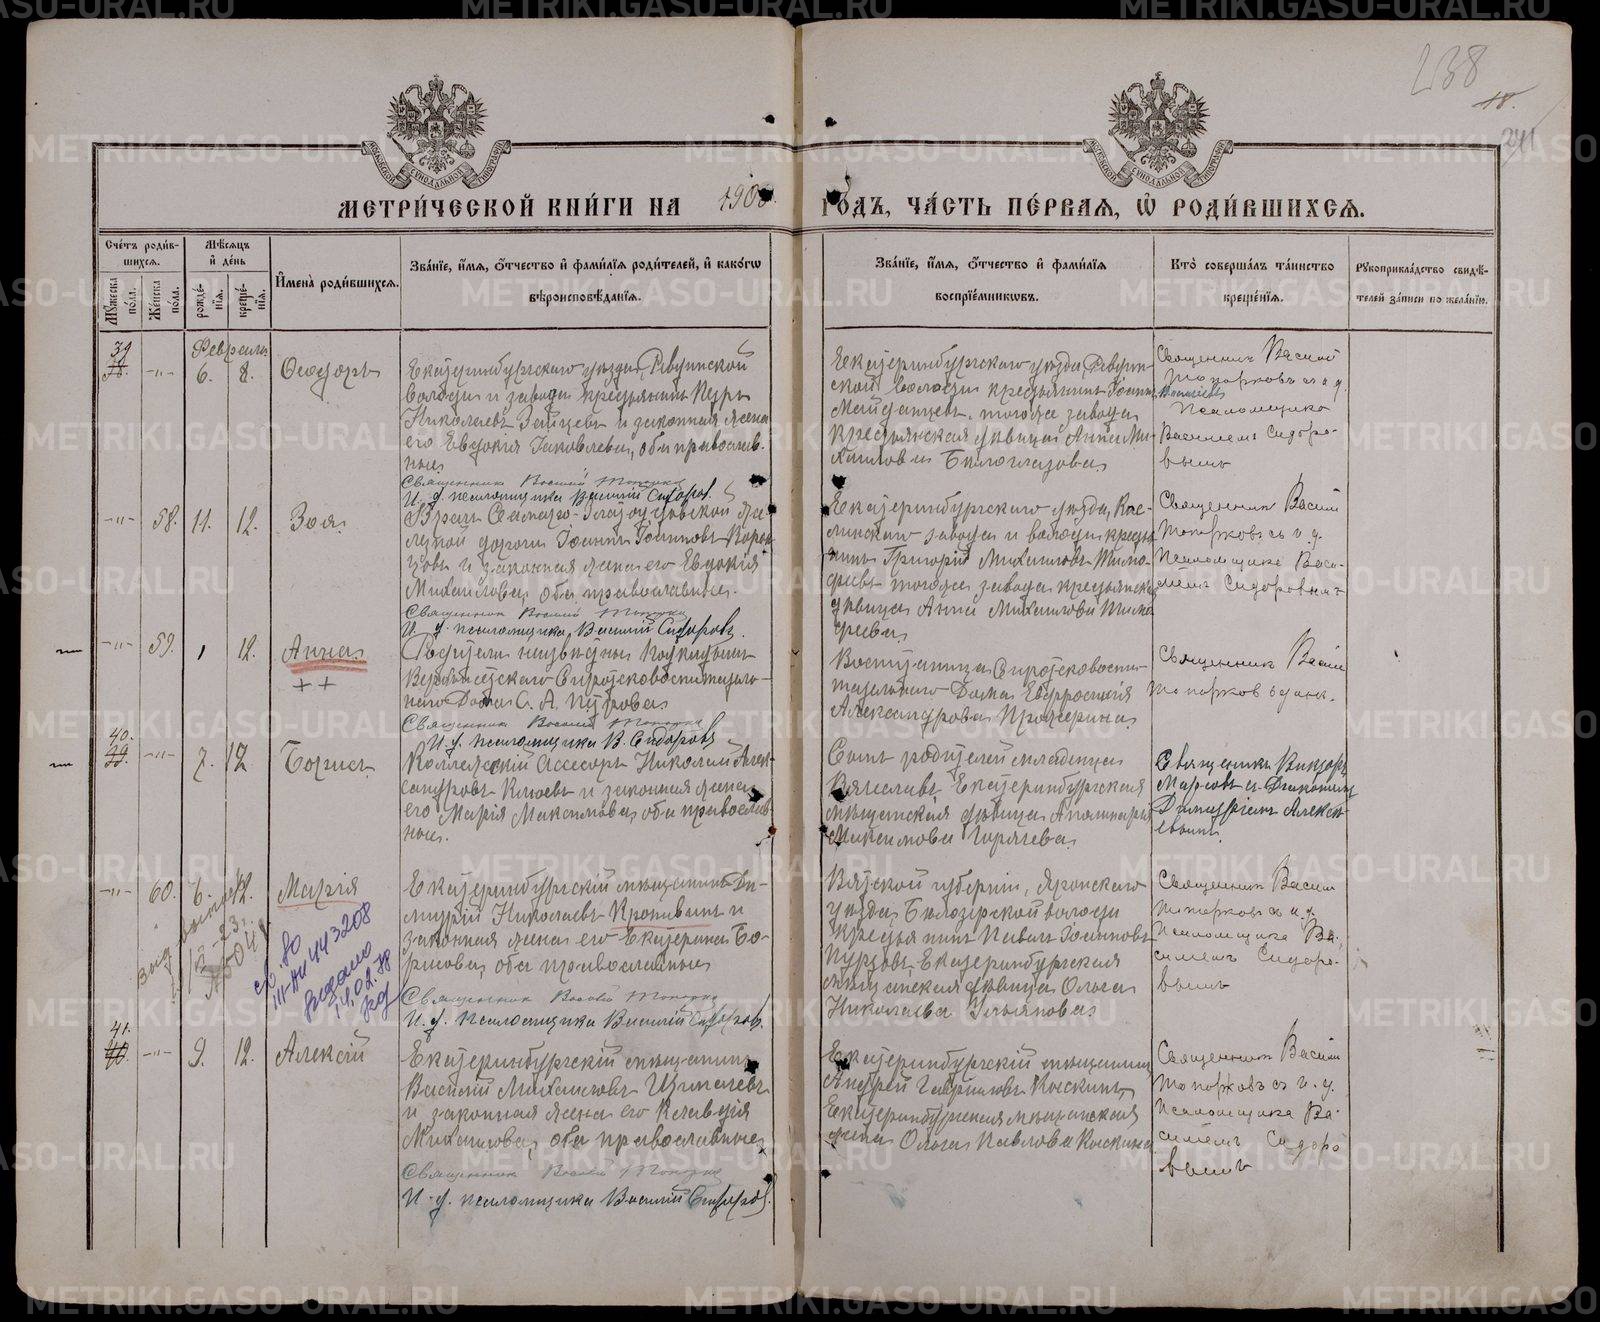 238
18.
241
МЕТРИ́ЧЕСКОЙ КНИ́ГИ НА 1908. ГОДЪ, ЧА́СТЬ ПЕ́РВАЯ, Ѡ РОДИ́ВШИХСЯ.
Сче́тъ роди́в-
шихся.
Му́жеска по́ла.
Же́нска по́ла.
Мѣ́сяцъ
и де́нь
рожде́-
нїя.
креще́-
нїя.
И҆мена̀ роди́вшихся.
Зва́нїе, и҆́мя, ѻ҆́тчество и҆ фамі́лїя роди́телей, и҆ како́гѡ
вѣроисповѣ́данїя.
Зва́нїе, и҆́мя, ѻ҆́тчество и҆ фамі́лїя
воспрїе́мникѡвъ.
Кто̀ соверша́лъ та́инство
креще́нїя.
Рꙋкоприкла́дство свидѣ́-
телей за́писи по жела́нїю.
Февраль
39
38.
-"-
6.
8.
Ѳеодоръ
Екатеринбургскаго уѣзда, Ревдинской
волости и завода крестьянинъ Петръ
Николаевъ Зайцевъ и законная жена
его Евдокія Іаковлева, оба православ-
ные.
Священникъ Василій Топорковъ
И. д. псаломщика Василій Сидоровъ.
Екатеринбургскаго уѣзда, Ревдин-
ской волости крестьянинъ Іоаннъ
Майданцевъ, тогоже завода
крестьянская дѣвица Анна Ми-
хаилова Бѣлоглазова
Священникъ Василій
Топорковъ съ и. д.
Псаломщика
Василіемъ Сидоро-
вымъ
-"-
58.
11.
12.
Зоя
Врачъ Самаро-Златоустовской же-
лѣзной дороги Іоаннъ Іоанновъ
и законная жена его Евдокія
Михаилова, оба православные.
Священникъ Василій Топорковъ
И. д. псаломщика Василій Сидоровъ.
Екатеринбургскаго уѣзда, Кас-
линскаго завода и волости кресть-
янинъ Григорій Михаиловъ Тимо-
феевъ тогоже завода крестьянская
дѣвица Анна Михаилова Тимо-
феева
Священникъ Василій
Топорковъ съ и. д.
Псаломщика Васи-
ліемъ Сидоровымъ
-"-
59.
1
12.
Анна
++
Родители неизвѣстны Подкидышъ
Верхъисетскаго Сиротсковоспитатель-
наго Дома С. А. Петрова
Священникъ Василій Топорковъ
И. д. псаломщика В. Сидоровъ
Воспитанница Сиротсковоспи-
тательнаго Дома Евфросинія
Александрова
Священникъ Василій
Топорковъ
40.
39.
-"-
7.
12
Борисъ
Коллежскій Ассесоръ Николай Алек-
сандровъ Клюевъ и законная жена
его Марія Максимова, оба православ-
ные.
Сынъ родителей младенца
Вячеславъ Екатеринбургская
мѣщанская дѣвица Аполинарія
Максимова Горячева
Священникъ Викторъ
и Діакономъ
Димитріемъ Алексѣ-
евымъ
-"-
60.
6.
12.
Марія
Екатеринбургскій мѣщанинъ Ди-
митрій Николаевъ Кропивинъ и
законная жена его Екатерина Бо-
рисова, оба православные
Священникъ Василій Топорковъ
И. д. псаломщика Василій Сидоровъ.
Вятской губерніи, Яранскаго
уѣзда Бѣлозерской волости
крестьянинъ Павелъ Іоанновъ
Екатеринбургская
мѣщанская дѣвица Ольга
Николаева Ульянова
Священникъ Василій
Топорковъ съ и. д.
Псаломщика Ва-
силіемъ Сидоро-
вымъ
св. во
III-АИ 443208
выдано
14.02.78
41.
40.
-"-
9.
12.
Алексій
Екатеринбургскій мѣщанинъ
Василій Михаиловъ
и законная жена его Клавдія
Михаилова, оба православные
Священникъ Василій Топорковъ
И. д. псаломщика Василій Сидоровъ.
Екатеринбургскій мѣщанинъ
Андрей Гавриловъ Кыскинъ,
Екатеринбургская мѣщанская
жена Ольга Павлова Кыскина
Священникъ Василій
Топорковъ съ и. д.
Псаломщика Ва-
силіемъ Сидоро-
вымъ
METRIKI.GASO-URAL.RU